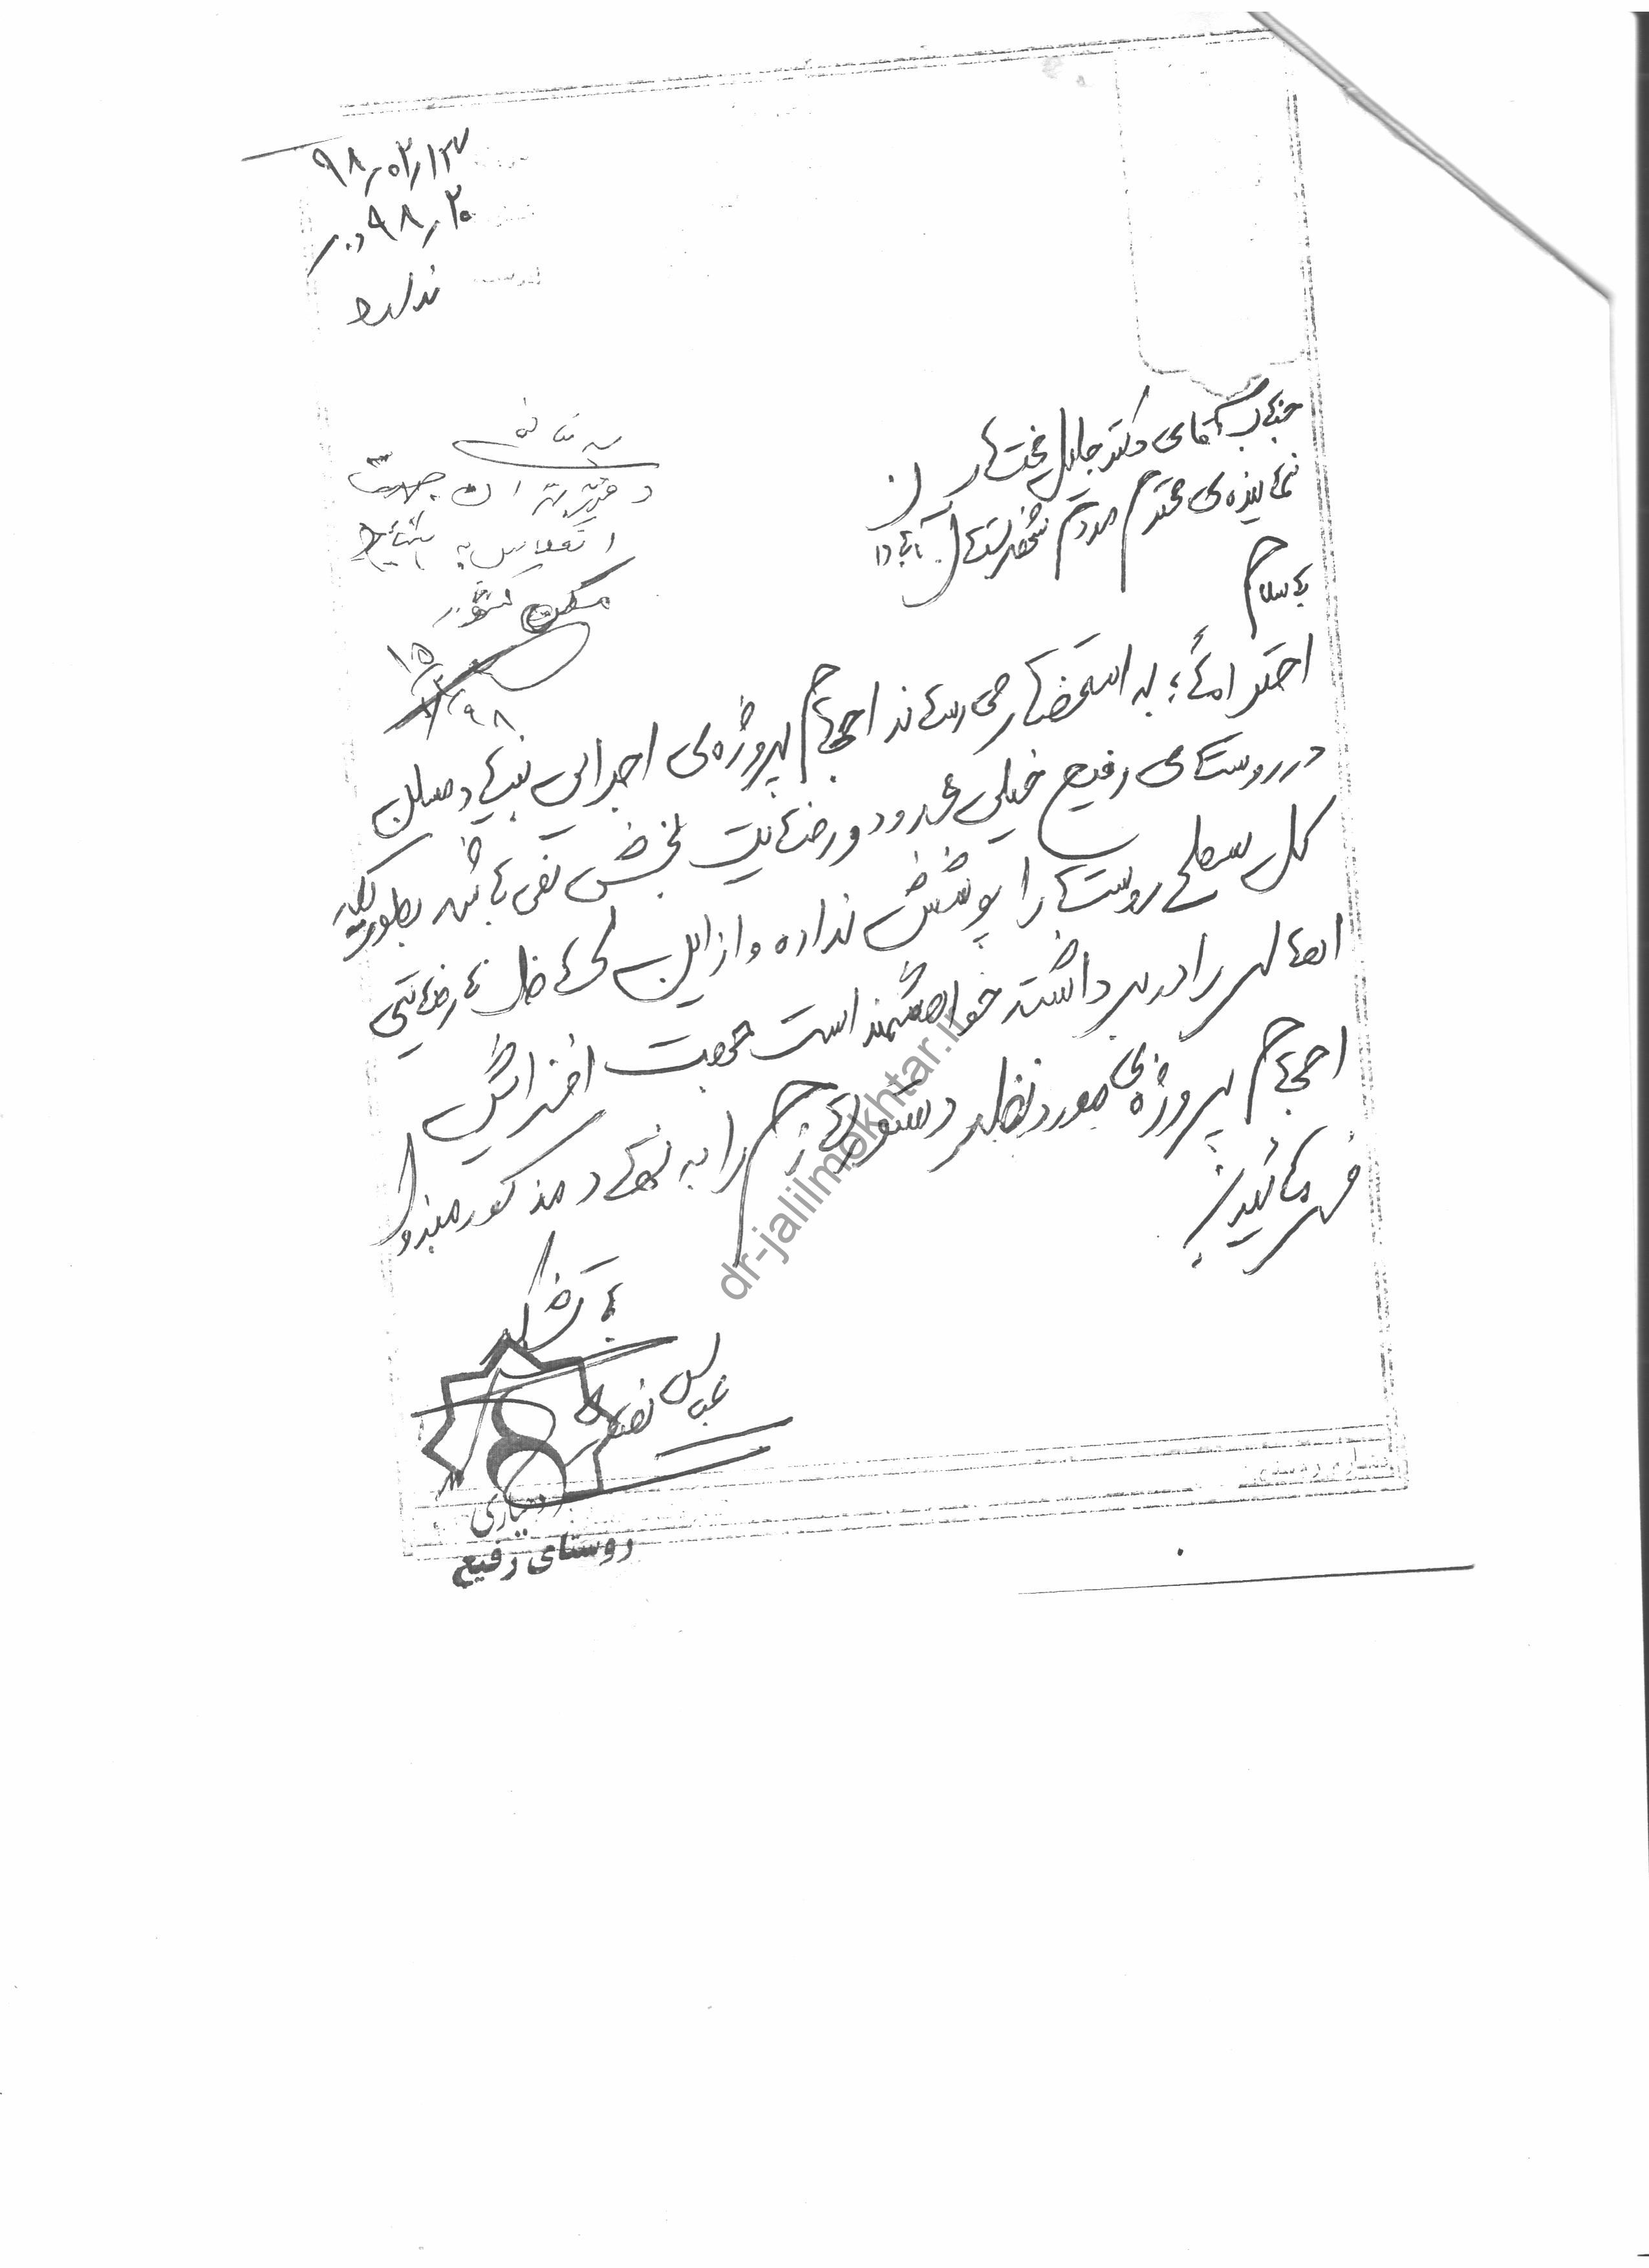 ۹۸٫۰۲٫۱۳
۲۰٫۹۸٫د٫ر
ندارد
جناب آقای دکتر جلیل مختار
نماینده‌ی محترم مردم شهرستان آبادان
با سلام
احتراماً؛ به استحضار می‌رساند احجام پروژه‌ی اجرایی بنیاد مسکن
در روستای رفیع خیلی محدود و رضایت بخش نمی باشد بطوریکه
کل سطح روستا را پوشش نداده و از این لحاظ نارضایتی
اهالی را دربر داشته خواهشمند است جهت افزایش
احجام پروژه‌ی مورد نظر دستور لازم را به نهاد مذکور مبذول
فرمائید.
دفتر تهران جهت
انعکاس به
مسکن کشور
۹۸
با تشکر
عباس
دهیاری
روستای رفیع
dr-jalilmokhtar.ir